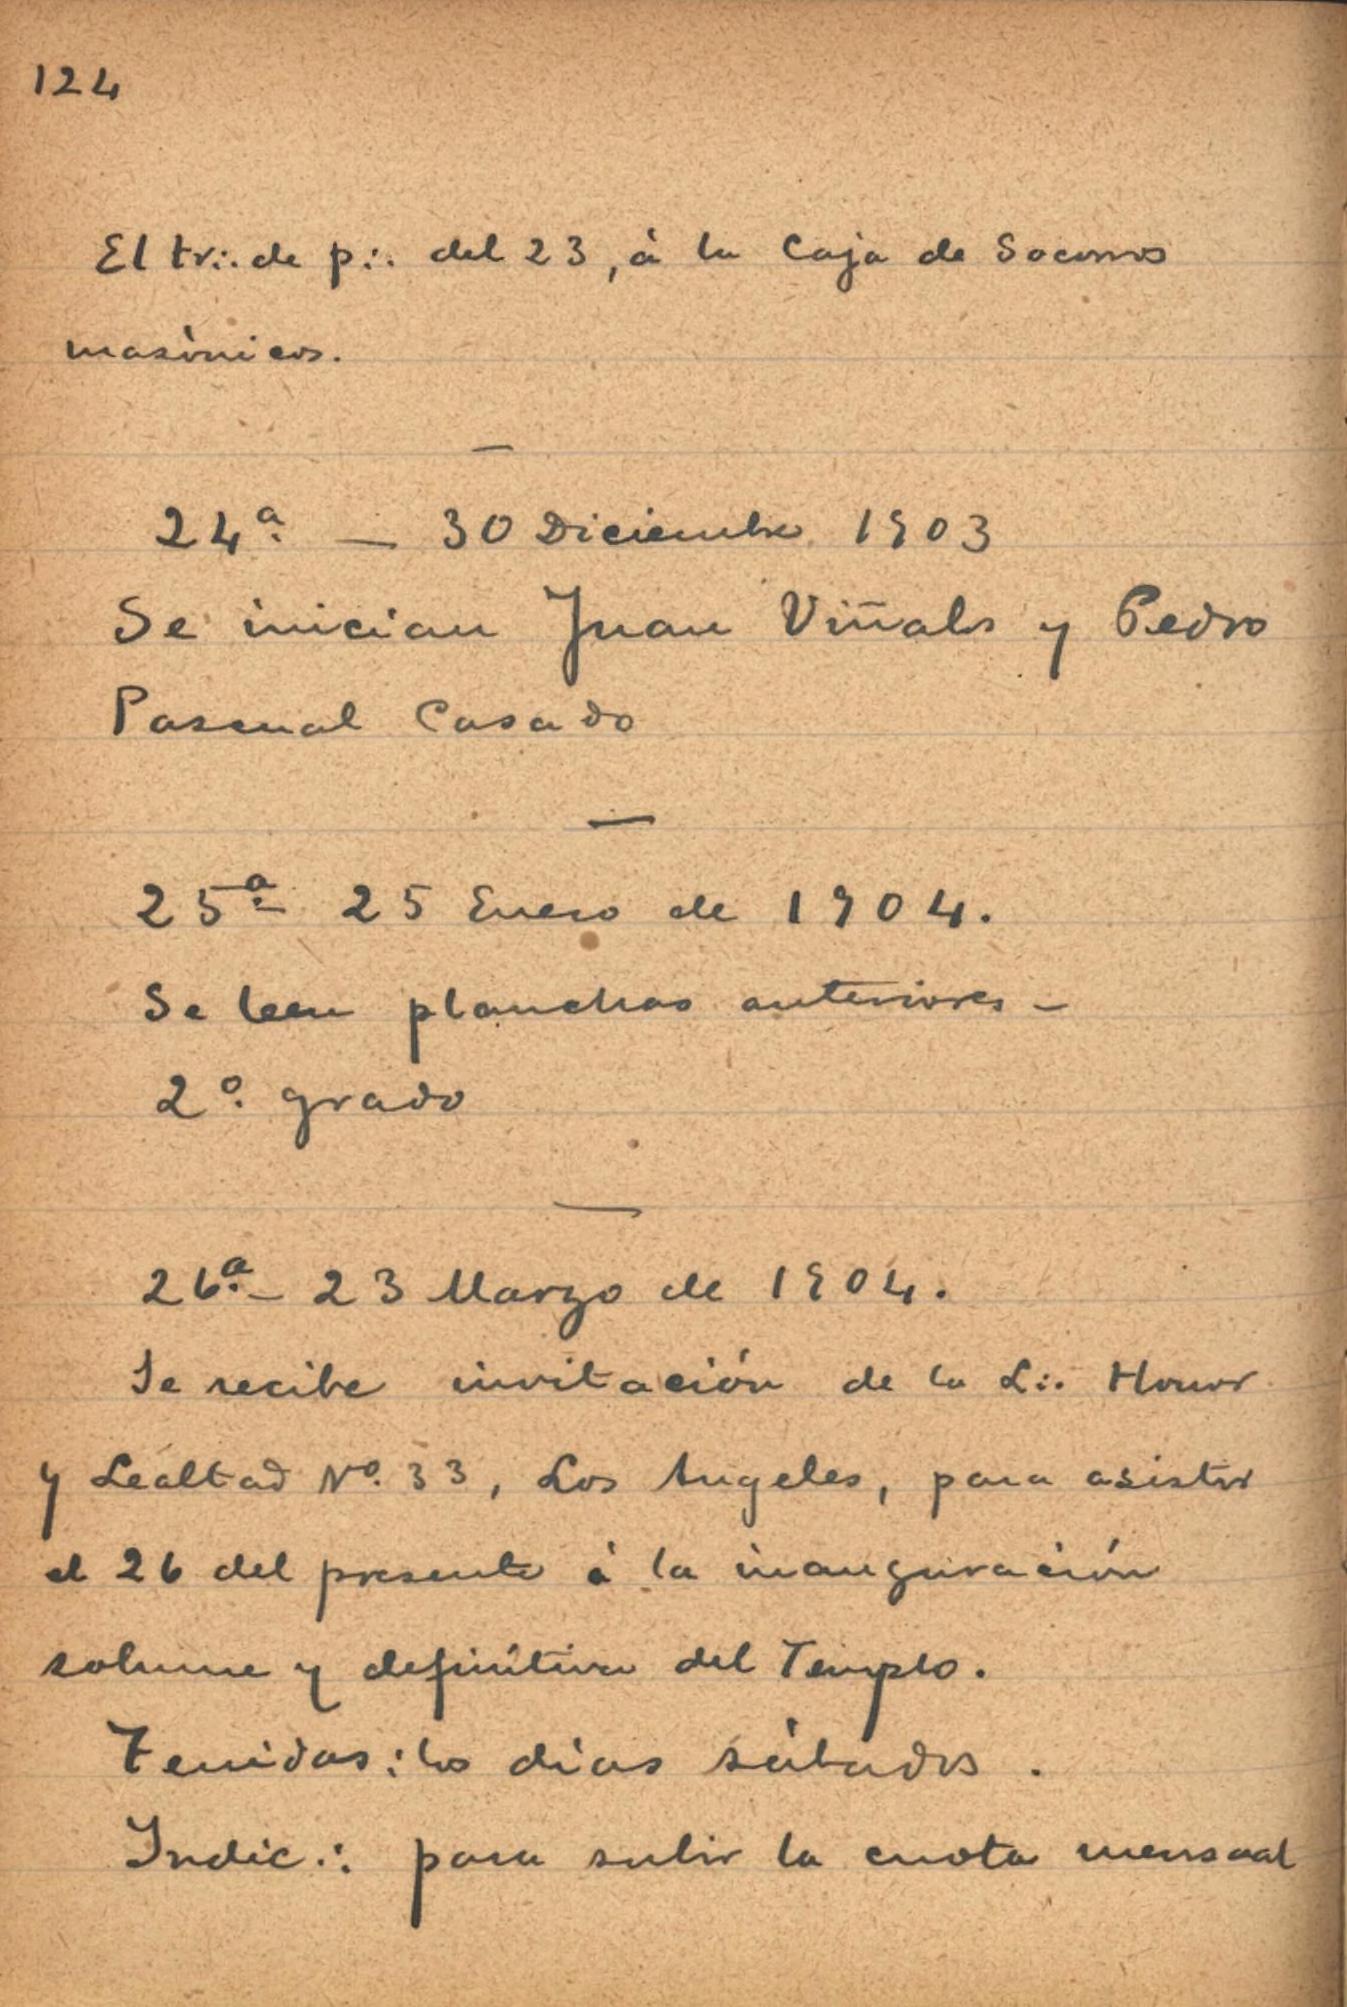 124
El tr∴ de p∴ del 23, à la Caja de Socorros
masònicos.
—
24ª. — 30 Diciembre 1903
Se inician Juan Viñals y Pedro
Pascual Casado
—
25ª. 25 Enero de 1904.
Se leen planchas anteriores -
2º. grado
—
26ª. - 23 Marzo de 1904.
Se recibe invitación de la L∴ Honor
y Lealtad Nº. 33, Los Angeles, para asistir
el 26 del presente à la inauguración
solemne y definitiva del Templo.
Tenidas: los dias sábados.
Indic∴ para subir la cuota mensual